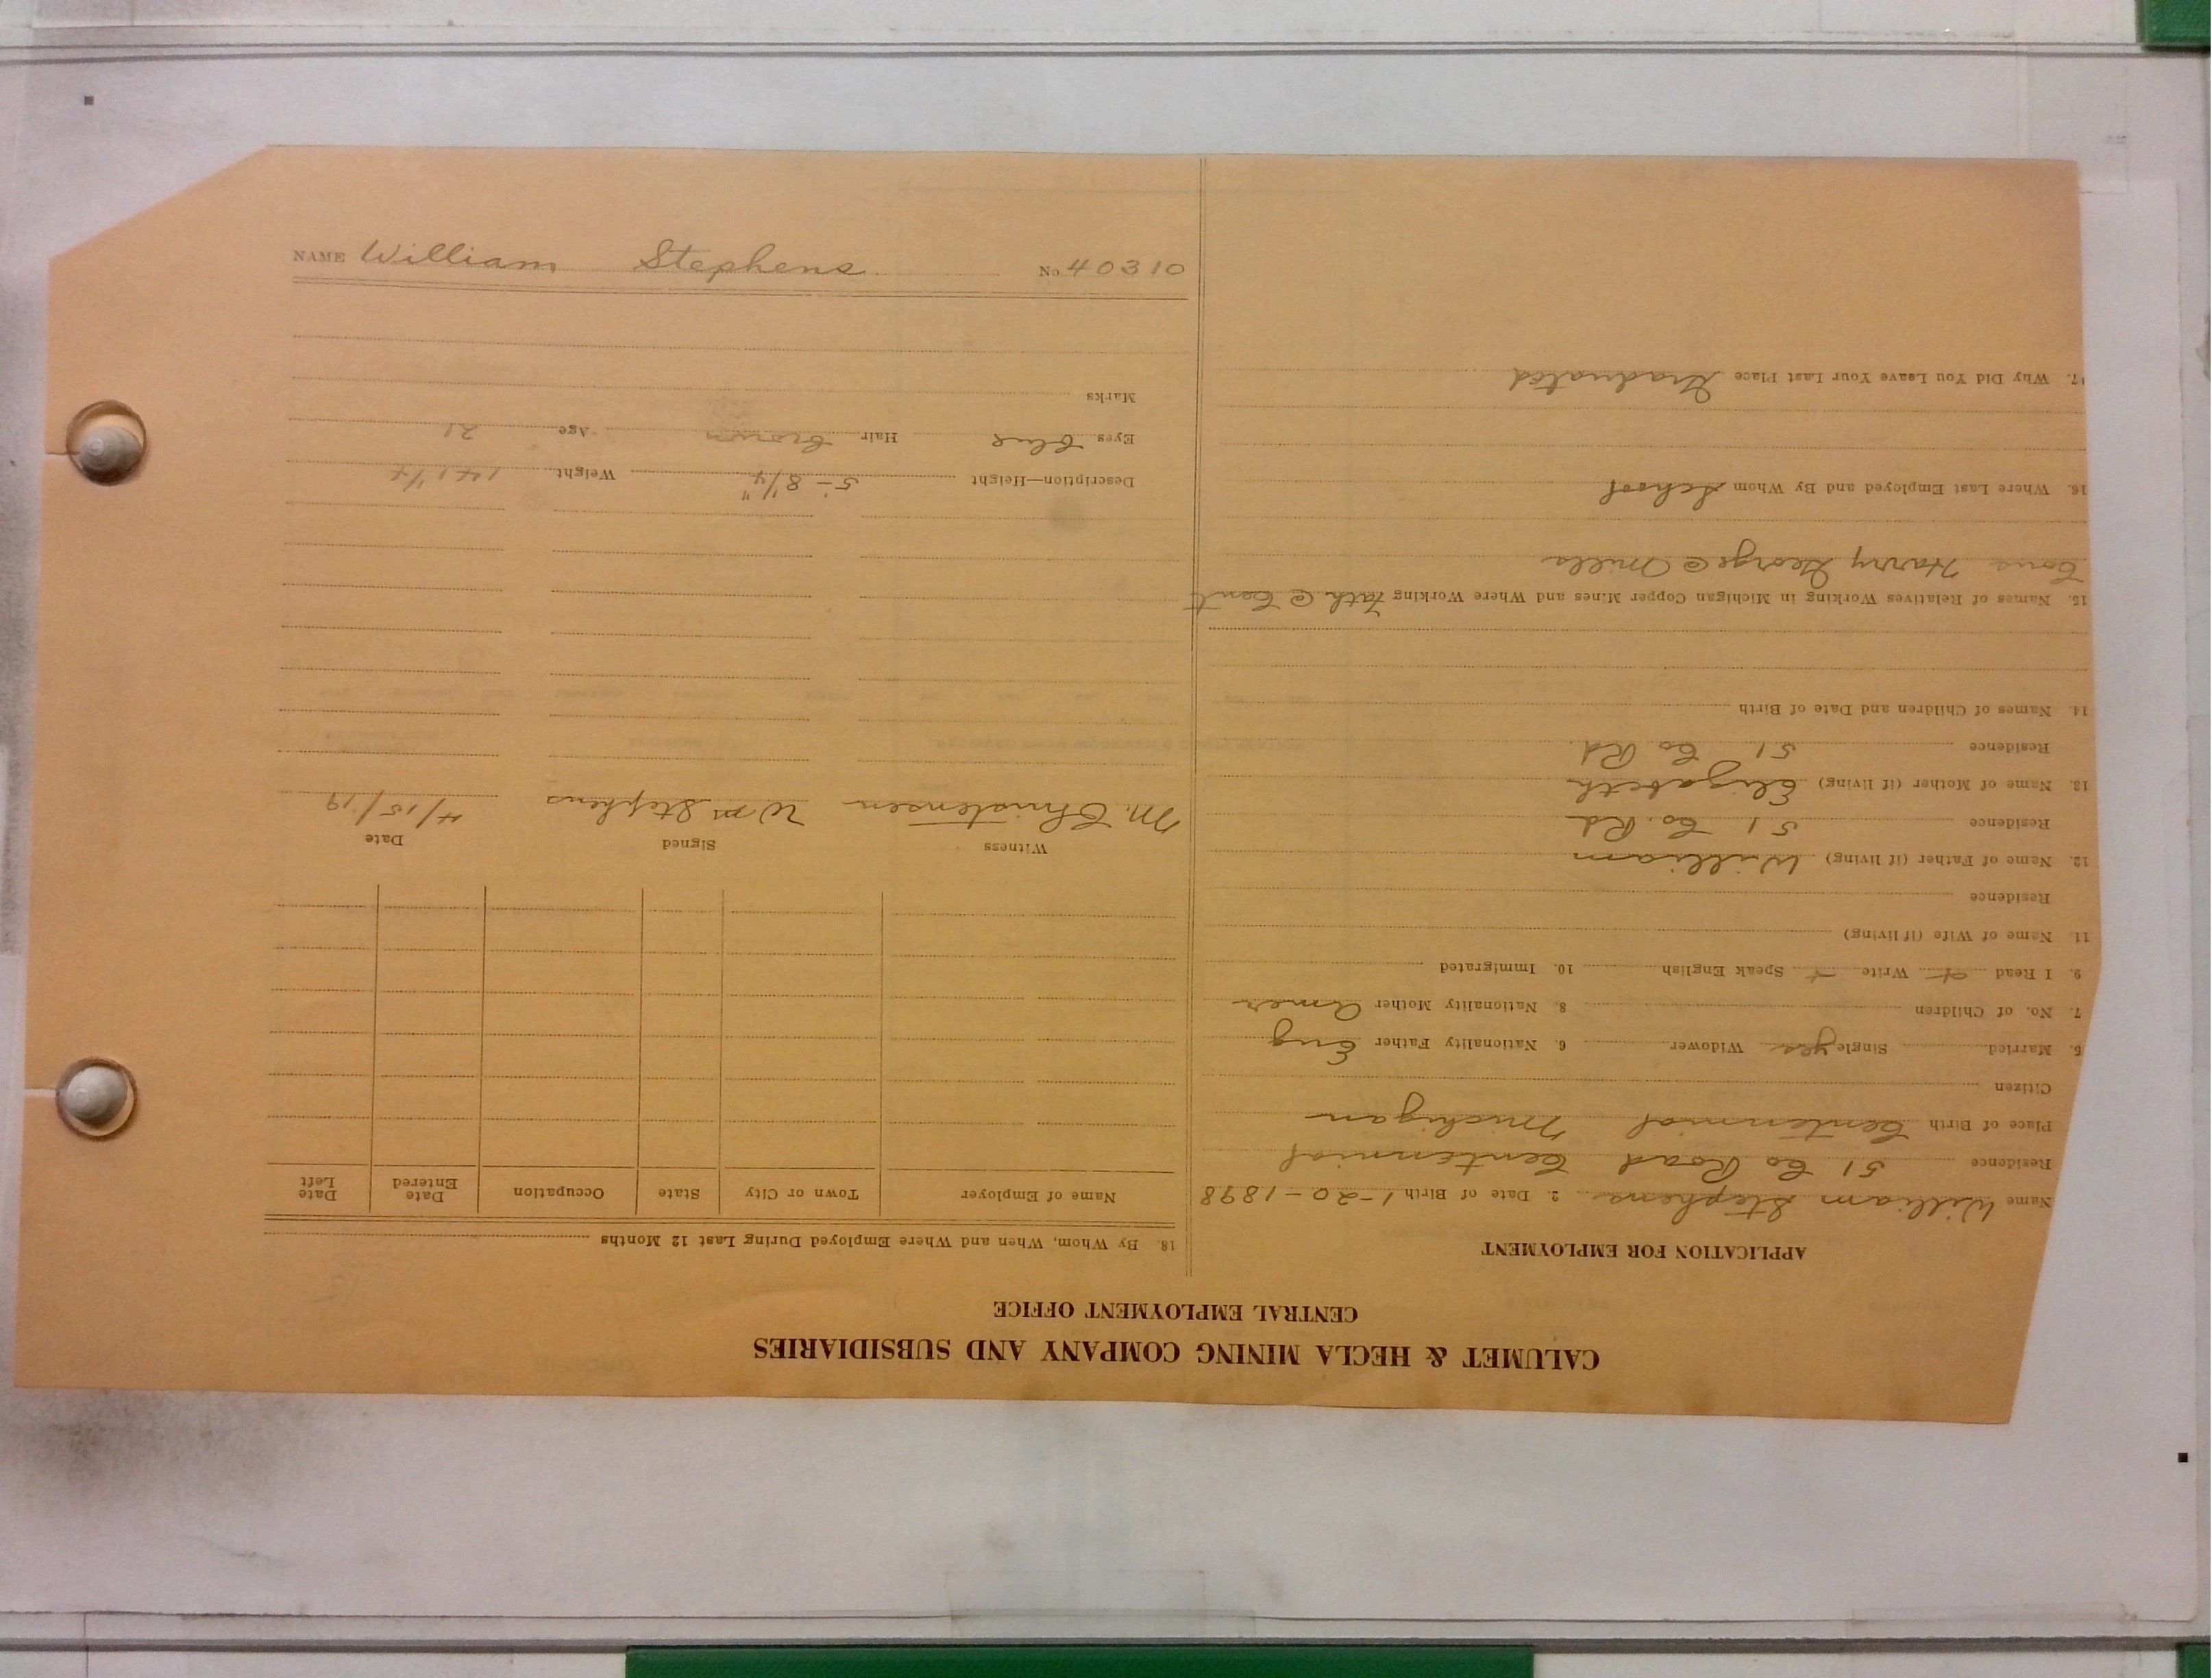 NAME William Stephens No. 40310
CALUMET & HECLA MINING COMPANY AND SUBSIDIARIES
CENTRAL EMPLOYMENT OFFICE
APPLICATION FOR EMPLOYMENT
Name William Stephens 2. Date of Birth 1-20-1898
Residence 51 Co Road Centennial
Place of Birth Centennial Michigan
Citizen
5. Married Single yes Widower 6. Nationality Father Eng
7. No. of Children 8. Nationality Mother Amer
9. I Read Write Speak English 10. Immigrated
11. Name of Wife (if living)
Residence
12. Name of Father (if living) William
Residence 51 Co. Rd
13. Name of Mother (if living) Elizabeth
Residence 51 Co Rd.
14. Names of Children and Date of Birth
15. Names of Relatives Working in Michigan Copper Mines and Where Working Fath @ Cent
Cous Harry George @ Mills
16. Where Last Employed and By Whom School
17. Why Did You Leave Your Last Place Graduated
18. By Whom, When and Where Employed During Last 12 Months
Name of Employer Town or City State Occupation Date Entered Date Left
Witness Signed Date
M. Christensen Wm Stephens 4/15/19
Description—Height 5'-8 1/4" Weight 141 1/4
Eyes blue Hair brown Age 21
Marks